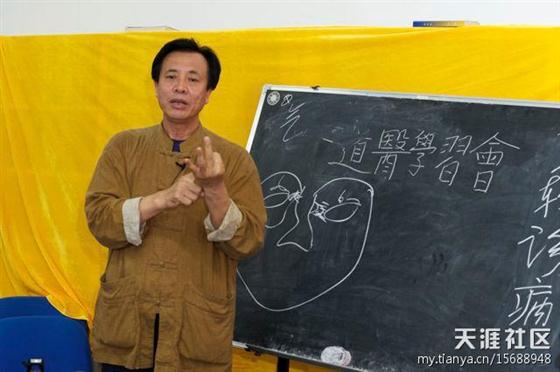 气
道醫學習會
诊病
天涯社区
my.tianya.cn/15688948